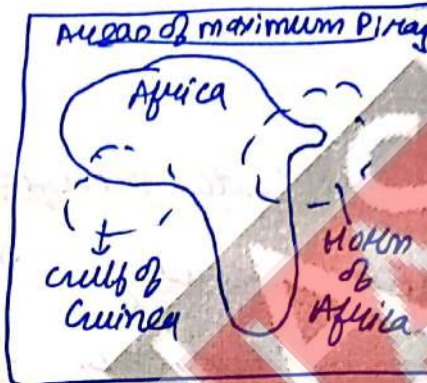 Areas of maximum Pirac
Africa
Gulf of
Guinea
Horn
of
Africa